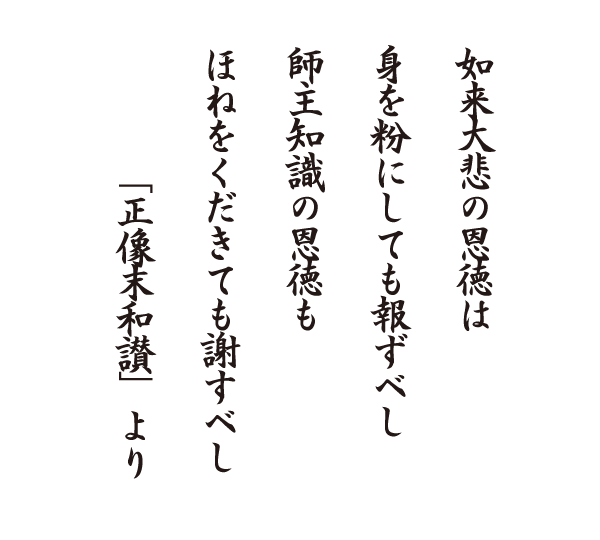 如来大悲の恩徳は
身を粉にしても報ずべし
師主知識の恩徳も
ほねをくだきても謝すべし
「正像末和讃」より